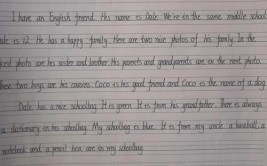 I have an English friend. His name is Dale. We're in the same middle school
Dale is 12. He has a happy family. Here are two nice photos of his family. In the
next photo are his sister and brother. His parents and grandparents are in the next photo.
These two boys are his cousins. Coco is his good friend and Coco is the name of a dog.
Dale has a nice schoolbag. It is green. It is from his grandfather. There is always
a dictionary in his schoolbag. My schoolbag is blue. It is from my uncle. a baseball, a
notebook and a pencil box are in my schoolbag.